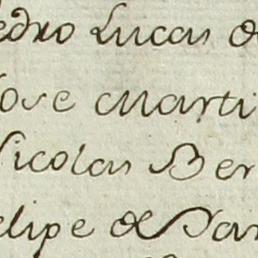 edro Lucas de
ose Marti
Nicolas Ber
elipe de San